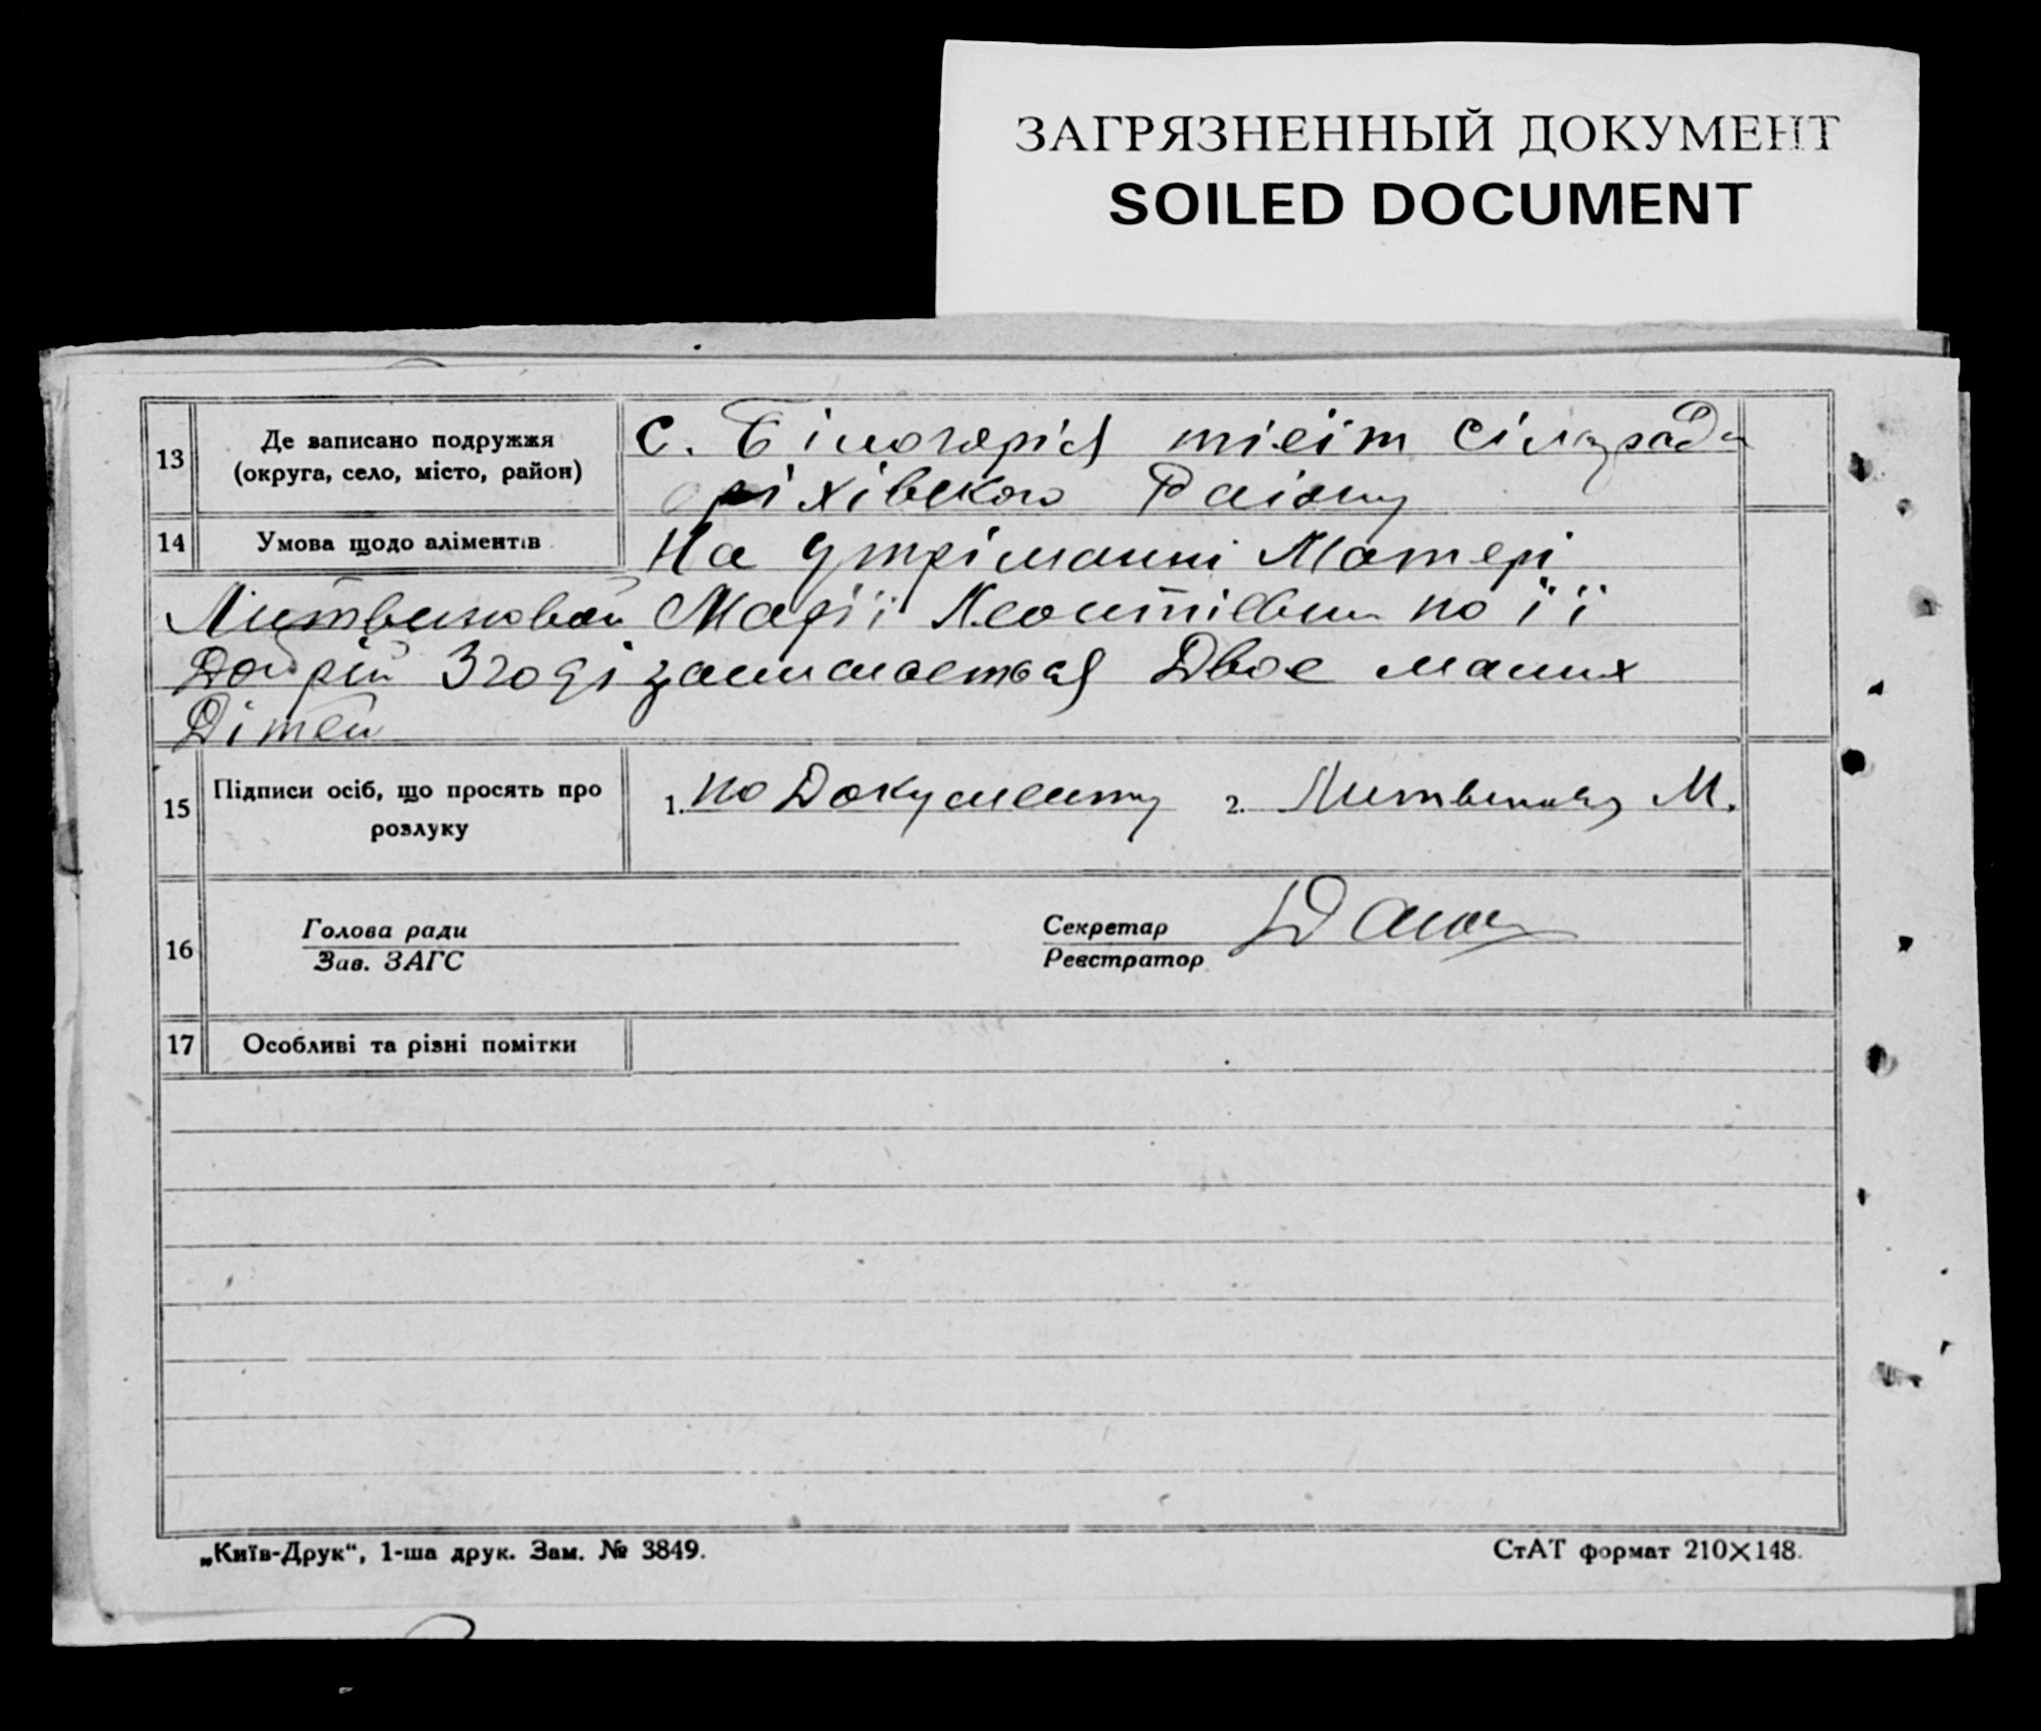 ЗАГРЯЗНЕННЫЙ ДОКУМЕНТ
SOILED DOCUMENT
13
Де записано подружжя
(округа, село, місто, район)
с. Білогорія
оріхівского Раіону
14
Умова щодо аліментів
На утріманні Матері
Литвиновой Марії по її
Добрій Згоді залишаеться Двое малих
Дітей
15
Підписи осіб, що просять про
розлуку
1. по Документу 2. Литвинова М.
16
Голова ради
Зав. ЗАГС
Секретар
Реєстратор
17
Особливі та різні помітки
„Київ-Друк“, 1-ша друк. Зам. № 3849.
СтАТ формат 210×148.